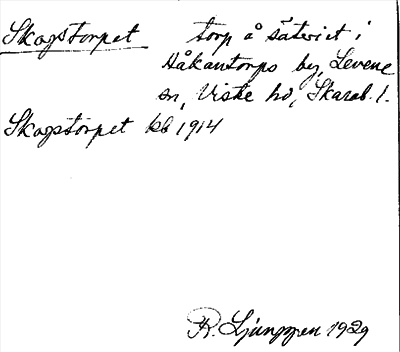 Skogstorpet torp å säteriet i
Håkantorps by, Levene
sn, Viste hd, Skarab. l.
Skogstorpet kb 1914
R. Ljunggren 1929